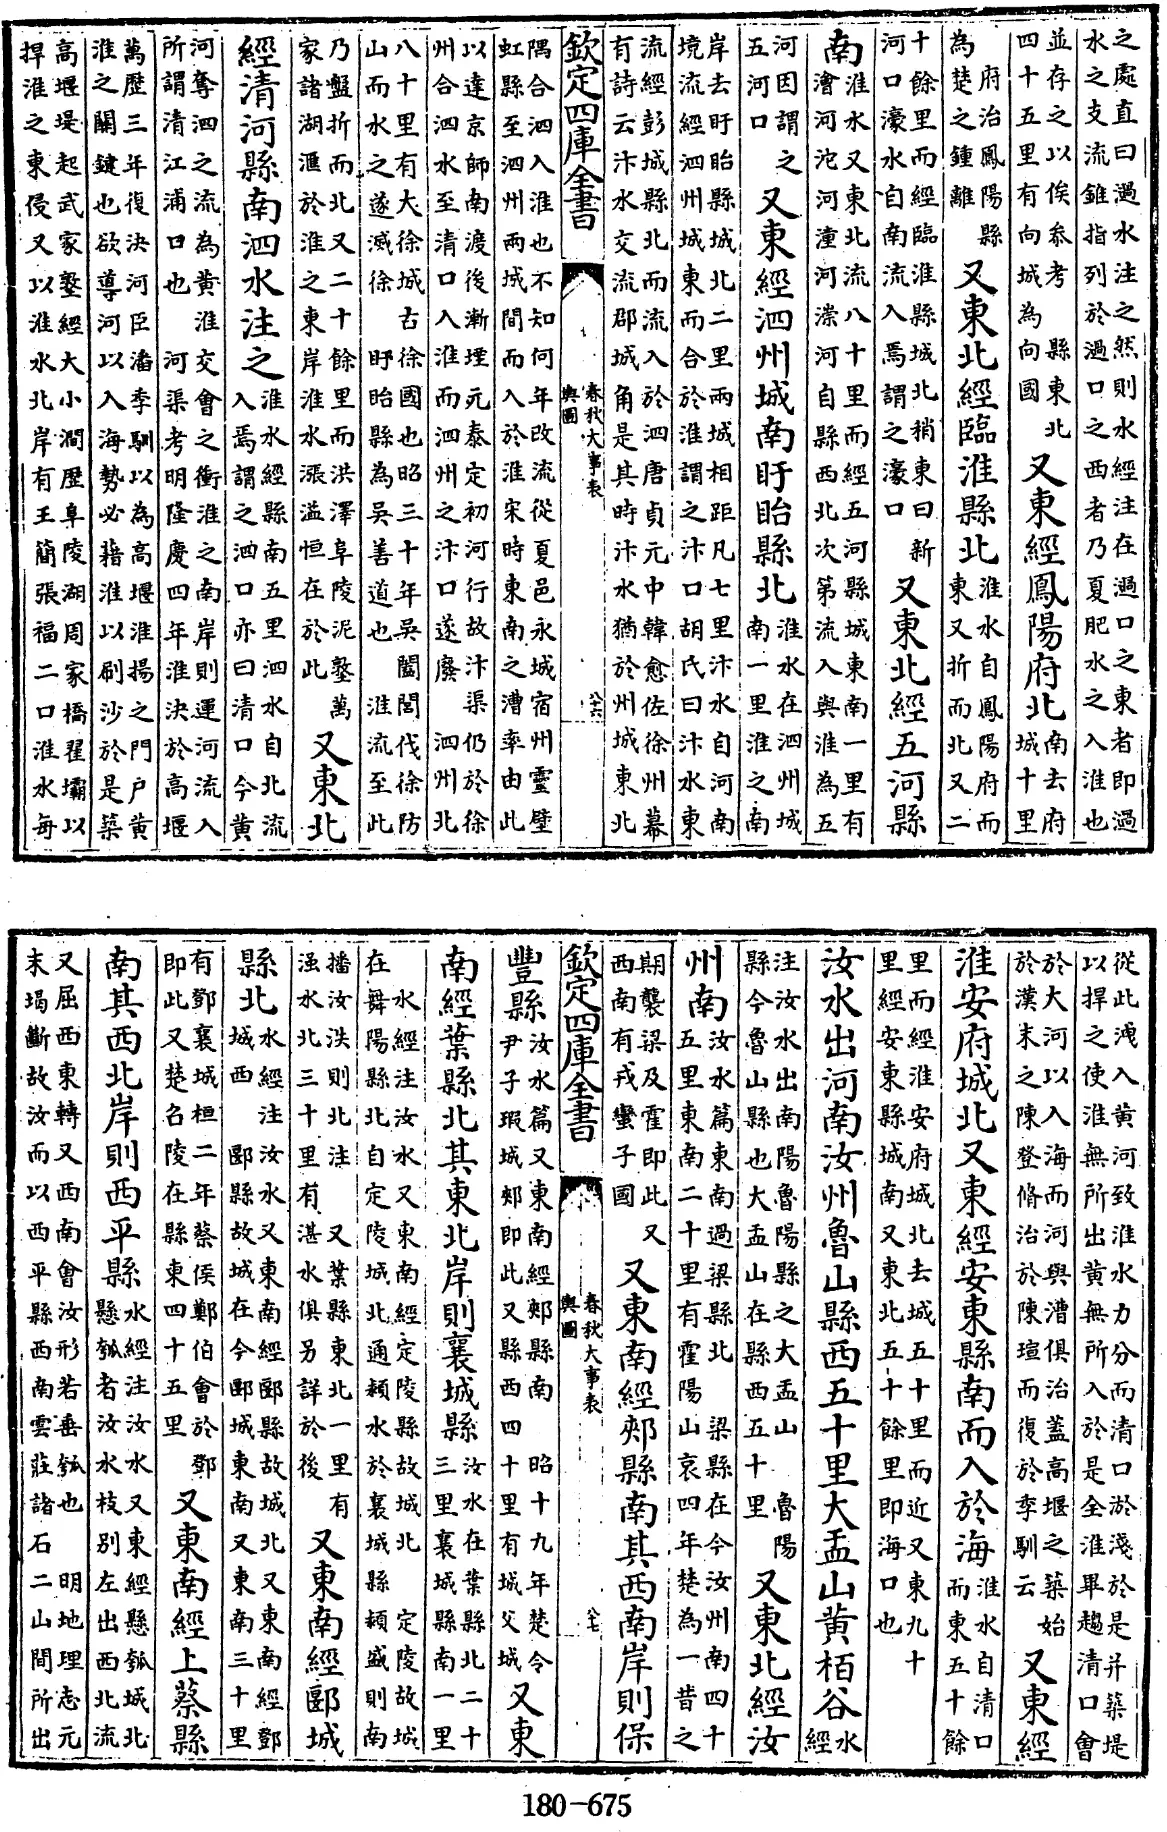 之處直曰濄水注之然則水經注在濄口之東者即濄
水之支流雖指列於濄口之西者乃夏肥水之入淮也
並存之以俟叅考 縣東北
四十五里有向城為向國
又東經鳳陽府北
南去府
城十里
府治鳳陽縣
為楚之鍾離
又東北經臨淮縣北
淮水自鳳陽府而
東又折而北又二
十餘里而經臨淮縣城北稍東曰新
河口濠水自南流入焉謂之濠口
又東北經五河縣
南
淮水又東北流八十里而經五河縣城東南一里有
澮河沱河潼河漴河自縣西北次第流入與淮為五
河因謂之
五河口
又東經泗州城南盱眙縣北
淮水在泗州城
南一里淮之南
岸去盱眙縣城北二里兩城相距凡七里汴水自河南
境流經泗州城東而合於淮謂之汴口胡氏曰汴水東
流經彭城縣北而流入於泗唐貞元中韓愈佐徐州幕
有詩云汴水交流郡城角是其時汴水猶於州城東北
欽定四庫全書
春秋大事表
輿圖
八十六
隅合泗入淮也不知何年改流從夏邑永城宿州靈壁
虹縣至泗州兩城間而入於淮宋時東南之漕率由此
以達京師南渡後漸堙元泰定初河行故汴渠仍於徐
州合泗水至清口入淮而泗州之汴口遂廢 泗州北
八十里有大徐城古徐國也昭三十年吳闔閭伐徐防
山而水之遂滅徐 盱眙縣為吳善道也 淮流至此
乃盤折而北又二十餘里而洪澤阜陵泥墪萬
家諸湖滙於淮之東岸淮水漲溢恒在於此
又東北
經清河縣南泗水注之
淮水經縣南五里泗水自北流
入焉謂之泗口亦曰清口今黃
河奪泗之流為黃淮交會之衝淮之南岸則運河流入
所謂清江浦口也 河渠考明隆慶四年淮決於高堰
萬歷三年復決河臣潘季馴以為高堰淮揚之門户黃
淮之關鍵也欲導河以入海勢必藉淮以刷沙於是築
高堰堤起武家墪經大小澗歷阜陵湖周家橋翟壩以
捍淮之東侵又以淮水北岸有王簡張福二口淮水每
從此洩入黃河致淮水力分而清口淤淺於是并築堤
以捍之使淮無所出黃無所入於是全淮畢趨清口會
於大河以入海而河與漕俱治蓋高堰之築始
於漢末之陳登脩治於陳瑄而復於季馴云
又東經
淮安府城北又東經安東縣南而入於海
淮水自清口
而東五十餘
里而經淮安府城北去城五十里而近又東九十
里經安東縣城南又東北五十餘里即海口也
汝水出河南汝州魯山縣西五十里大盂山黃栢谷
水
經
注汝水出南陽魯陽縣之大盂山 魯陽
縣今魯山縣也大盂山在縣西五十里
又東北經汝
州南
汝水篇東南過梁縣北 梁縣在今汝州南四十
五里東南二十里有霍陽山哀四年楚為一昔之
期襲梁及霍即此又
西南有戎蠻子國
又東南經郟縣南其西南岸則保
欽定四庫全書
春秋大事表
輿圖
八十七
豐縣
汝水篇又東南經郟縣南 昭十九年楚令
尹子瑕城郟即此又縣西四十里有城父城
又東
南經葉縣北其東北岸則襄城縣
汝水在葉縣北二十
三里襄城縣南一里
水經注汝水又東南經定陵縣故城北 定陵故城
在舞陽縣北自定陵城北通潁水於襄城縣潁盛則南
播汝泆則北注 又葉縣東北一里有
滍水北三十里有湛水俱另詳於後
又東南經郾城
縣北
水經注汝水又東南經郾縣故城北又東南經鄧
城西 郾縣故城在今郾城東南又東南三十里
有鄧襄城桓二年蔡侯鄭伯會於鄧
即此又楚召陵在縣東四十五里
又東南經上蔡縣
南其西北岸則西平縣
水經注汝水又東經懸瓠城北
懸瓠者汝水枝別左出西北流
又屈西東轉又西南會汝形若垂瓠也 明地理志元
末堨斷故汝而以西平縣西南雲莊諸石二山間所出
180-675